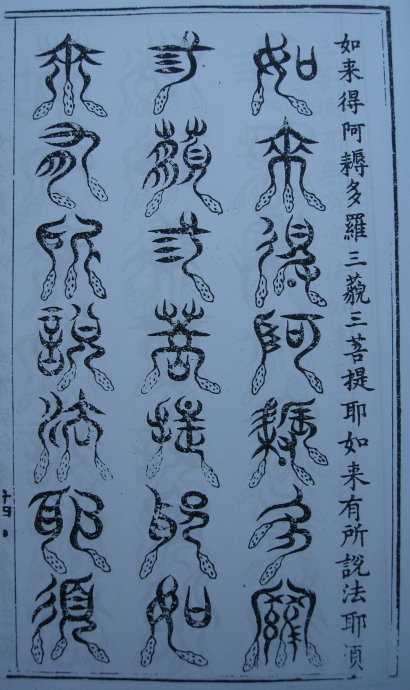 如来得阿耨多羅三藐三菩提耶如来有所說法耶須
如来得阿耨多羅
三藐三菩提耶如
来有所說法耶須
十四